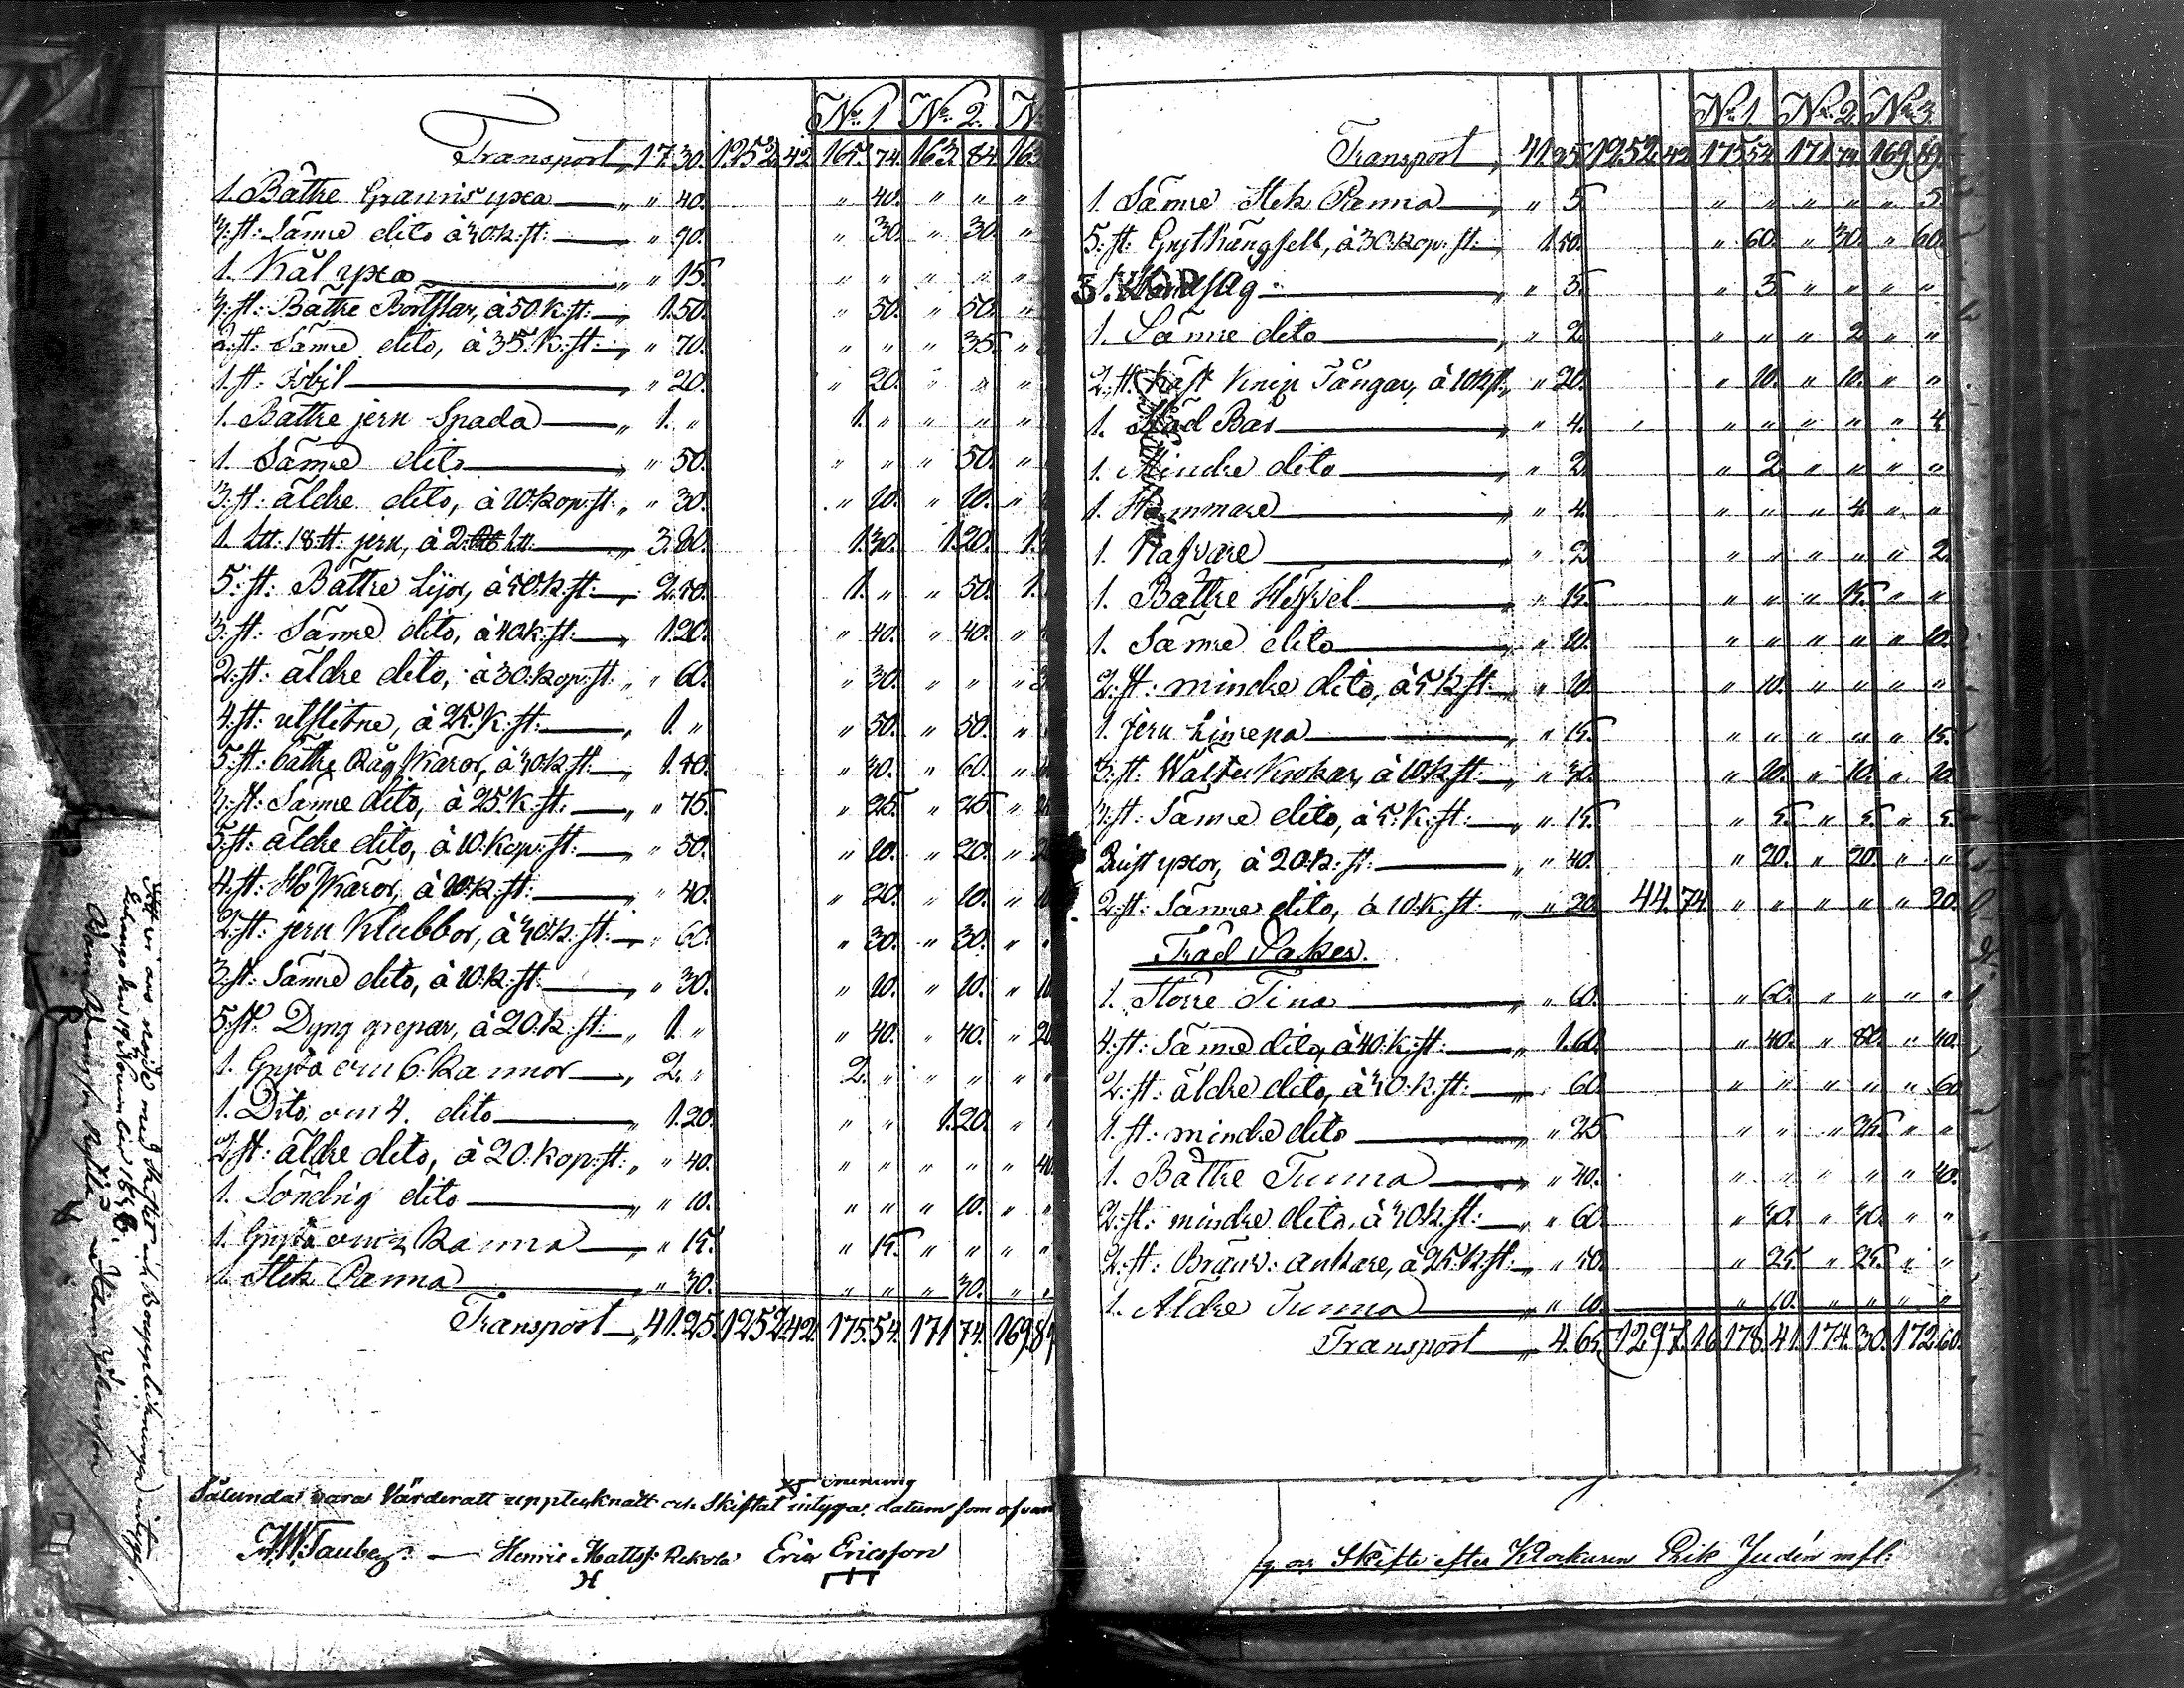 No 1. No 2. No
Transport „ 17. 30. 1252. 42. 165. 74. 163. 84. 163
1. Båttre Granris yxa „ „ 40. „ 40. „ „ „
3. st: Sämre dito à 30. k: st: „ 90. „ 30. „ 30. „
1. Kål yxa „ „ 15. „ „ „ „ „
3. st: Båttre Bortskar, à 50 k: st: „ 1. 50. „ 50. „ 50. „
2. st: Sämre dito, à 35. k: st: „ „ 70. „ „ „ 35. „
1. st: „ „ 20. „ 20. „ „ „
1. Båttre jern Spada „ 1. „ 1. „ „ „ „
1. Sämre dito „ „ 50. „ „ „ 50. „
3. st: äldre dito, à 10. kop: st: „ „ 30. „ 10. „ 10. „
1. Ltt: 18. tt: jern, à 2. Ltt: „ 3. 80. 1. 30. 1. 20. 1.
5: st: Båttre Lijor, à 50. k: st: „ 2. 50. 1. „ „ 50. 1.
3: st: Sämre dito, à 40. k: st: „ 1. 20. „ 40. „ 40. „
2: st: äldre dito, à 30. kop: st: „ „ 60. „ 30. „ „ „
4: st: utslitne, à 25. k: st: „ 1. „ „ 50. „ 50. „
5: st: båttre Råg Skäror, à 30 k: st: „ 1. 50. „ 30. „ 60. „
3: st: Sämre dito, à 25. k: st: „ „ 75. „ 25. „ 25. „
5: st: äldre dito, à 10. kop: st: „ 50. „ 10. „ 20. „
4: st: Skäror, à 10. k: st: „ 40. „ 20. „ 10. „
2: st: jern Klubbor, à 30. k: st: „ 60. „ 30. „ 30. „
3: st: Sämre dito, à 10. k: st: „ „ 30. „ 10. „ 10. „ 10
5: st: Dyng grepar, à 20. k: st: „ 1. „ „ 40. „ 40. „ 20
1. Gryta om 6. kannor „ 2. „ 2. „ „ „ „
1. Dito, om 4. dito „ 1. 20. „ „ 1. 20. „
2 st: äldre dito, à 20. kop: st: „ „ 40. „ „ „ „ „ 40
1. Söndrig dito „ „ 10. „ „ „ 10. „
1. Gryta om kanna „ „ 15. „ 15. „ „ „
1. Stek Panna „ „ 30. „ „ „ 30. „
Transport „ 41. 25. 1252. 42. 175. 54. 171. 74. 169. 8
Sålunda vara Värderatt uppteknatt och Skiftat intygar datum som ofvan
Tauber. Henric Matts: Rekola Eric Ericsson
H
Att vi äro nöjde med skiftet och intyga
No 1. No 2. No 3.
Transport „ 41. 25. 1252. 42. 175. 54. 171. 74. 169. 89.
1. Sämre Stek Panna „ „ 5 „ „ „ „ „ 5
5: st: Gryt hängsell, à 30. kop: st: „ 1. 50. „ 60. „ 30. „ 60.
1. „ „ 5. „ 5 „ „ „ „
1. Sämre dito „ „ 2 „ „ „ 2 „ „
2: st: Knip Tångar, à 10 k: st: „ „ 20. „ 10. „ 10. „ „
1. Städ Bas „ „ 4. „ „ „ „ „ 4
1. Mindre dito „ „ 2. „ 2. „ „ „ „
1. Hammare „ „ 4. „ „ „ 4. „ „
1. Nafvare „ „ 2 „ „ „ „ „ 2.
1. Båttre Hefvel „ „ 15. „ „ „ 15. „ „
1. Sämre dito „ „ 10. „ „ „ „ „ 10.
2: st: mindre dito, à 5 k: st: „ „ 10. „ 10. „ „ „ „
1. jern „ „ 15. „ „ „ „ „ 15.
3: st: Krokar, à 10. k: st: „ „ 30. „ 10. „ 10. „ 10
3: st: Sämre dito, à 5. k: st: „ „ 15. „ 5. „ 5. „ 5.
2 yxor, à 20. k: st: „ 40. „ 20. „ 20. „ „
2: st: Sämre dito, à 10. k: st: „ „ 20. 44. 74. „ „ „ „ „ 20.
Träd Saker.
1. Större Tina „ 60. „ 60. „ „ „ „
4: st: Sämre dito, à 40. k: st: „ 1. 60. „ 40. „ 80. „ 40.
2: st: äldre dito, à 30. k: st: „ 60. „ „ „ „ „ 60
1. st: mindre dito „ 25 „ „ „ 25. „ „
1. Båttre Tunna „ „ 40. „ „ „ „ „ 40.
2: st: mindre dito, à 30. k: st: „ „ 60. „ 30. „ 30. „ „
2: st: Bränv: ankare, à 25. k: st: „ „ 50. „ 25. „ 25. „ „
1. Äldre Tunna „ „ 10. „ 10. „ „ „ „
Transport „ 4. 65. 1297. 16. 178. 41. 174. 30. 172. 60.
Skifte efter Klockaren Erik Judén mfl: